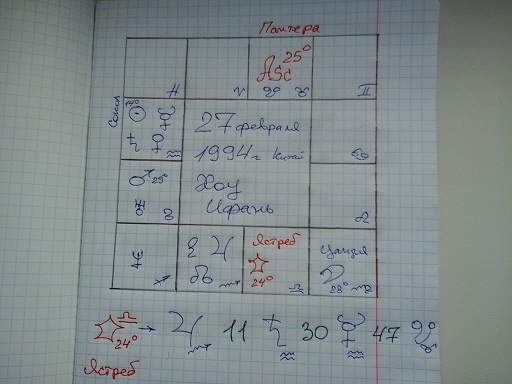 Пантера
25°
Asc
27 февраля
1994 г. Китай
25
Хоу
Ифань
Ястреб
24°
Цапля
28°
24° → 11 30 47
Ястреб